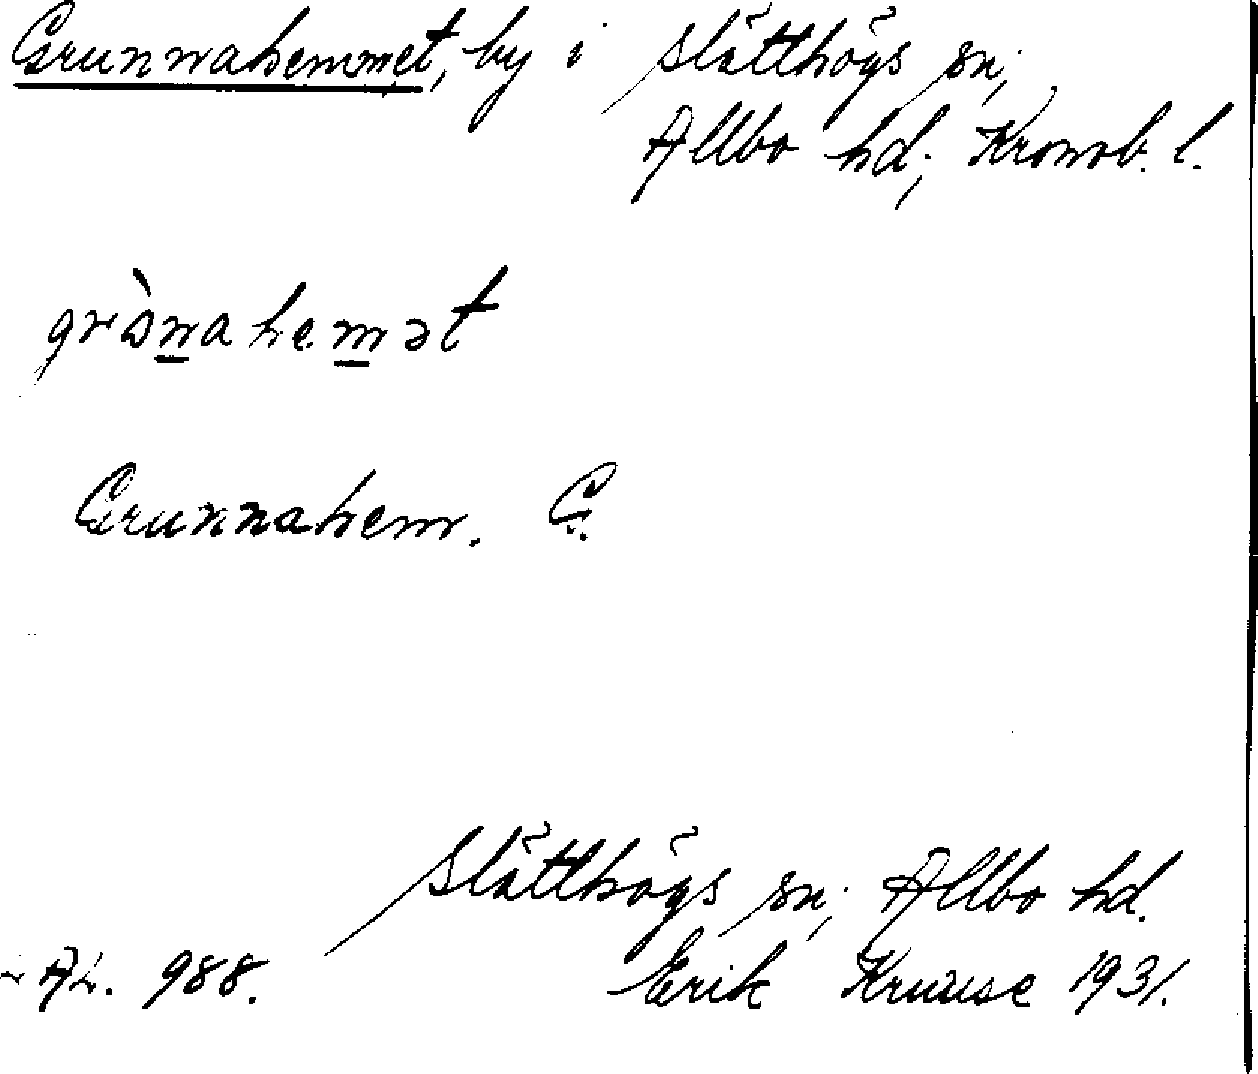 Grunnahemmet, by i Slätthögs sn;
Allbo hd; Kronob. l.
grònahemət
Grunnahem. G.
Slätthögs sn; Allbo hd.
AL. 988. Erik Kruuse 1931.